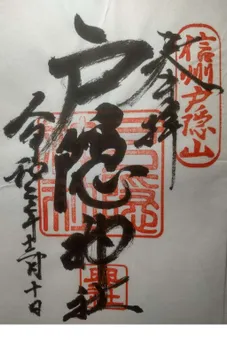 信州戸隠山
奉拝
戸隠神社
令和三年
月十日